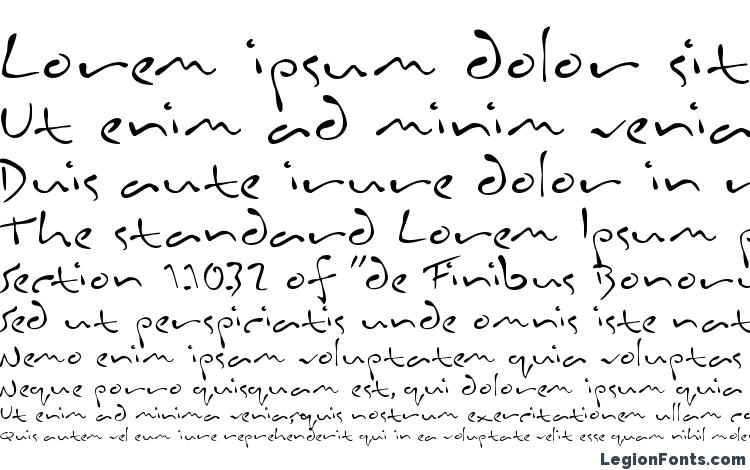 Lorem ipsum dolor sit
Ut enim ad minim venia
Duis aute irure dolor in r
The standard Lorem Ipsum p
Section 1.10.32 of "de Finibus Bonoru
Sed ut perspiciatis unde omnis iste nat
Nemo enim ipsam voluptatem quia voluptas
Neque porro quisquam est, qui dolorem ipsum quia
Ut enim ad minima veniam, quis nostrum exercitationem ullam co
Quis autem vel eum iure reprehenderit qui in ea voluptate velit esse quam nihil mole
LegionFonts.com